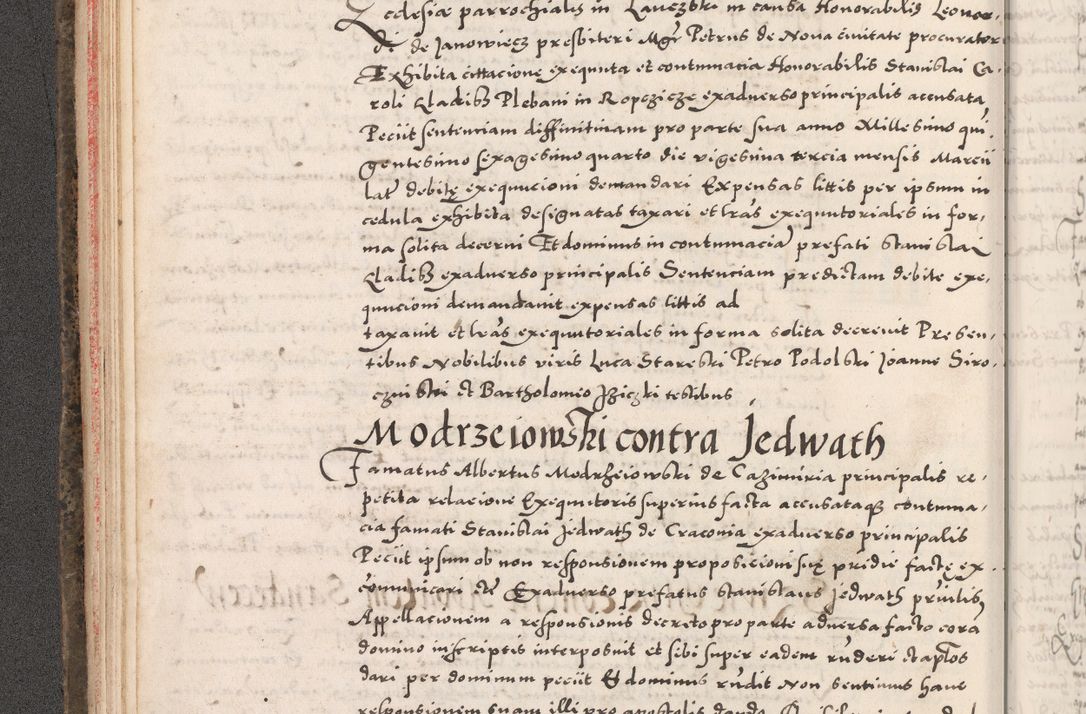 Ecclesiæ parrochialis in Lanczski in causa Honorabilis Leonar-
di de Janowiecz presbiteri Mgr Petrus de Noua ciuitate procurator
Exhibita cittacione exequuta et contumacia Honorabilis Stanislai Ca-
roli Gladisz Plebani in Ropczicze exaduerso principalis accusata
Peciit sententiam diffinitiuam pro parte sua anno Millesimo quin-
gentesimo sexagesimo quarto die vigesima tercia mensis Marcii
latam debitę exequucioni demandari Expensas littis per ipsum in
cedula exhibita designatas taxari et lras exequutoriales in for-
ma solita decerni Et dominus in contumaciam prefati Stanislai
Gladisz exaduerso principalis Sentenciam predictam debite exe-
quucioni demandauit expensas littis ad
taxauit et lras exequutoriales in forma solita decreuit Presen-
tibus Nobilibus viris Luca Stareski Petro Podolski Joanne Siro-
czinski et Bartholomeo testibus
Modrzeiowski contra Jedwath
Famatus Albertus Modrzeiowski de Cazimiria principalis re-
petita relacione Exequutoris superius facta accusataque contuma-
cia famati Stanislai Jedwath de Craconia exaduerso principalis
Peciit ipsum ob non responsionem proposicioni suę pridie factę ex-
cõmunicari etc Exaduerso prefatus Stanislaus Jedwath prinlis
Appellacionem a responsionis decreto pro parte aduersa facto corã
domino in scriptis interposuit et sibi super eadem rñderi et aplõs
dari per dominum peciit Et dominus rñdit Non sentimus hanc
responsionem suam illi pro apostolis dando